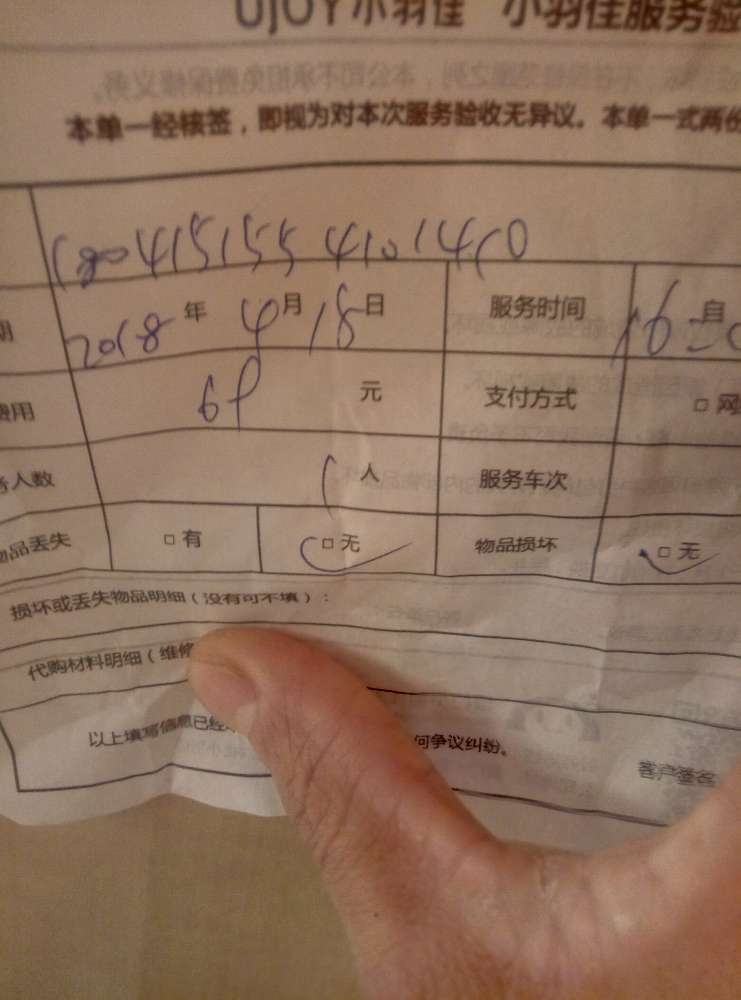 UjOY小羽佳 小羽佳服务验
本单一经核签，即视为对本次服务验收无异议。本单一式两份
1804151554101410
期 2018年 4月 18日 服务时间 16 自
费用 69 元 支付方式 □ 网
务人数 1 人 服务车次
物品丢失 □ 有 □ 无 物品损坏 □ 无
损坏或丢失物品明细（没有可不填）：
代购材料明细（维修
以上填写信息已经 何争议纠纷。
客户签名